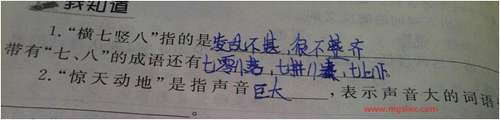 我知道
1.“横七竖八”指的是 很不整齐
带有“七、八”的成语还有七零八落,七拼八凑,七上八下
2.“惊天动地”是指声音巨大,表示声音大的词语
。